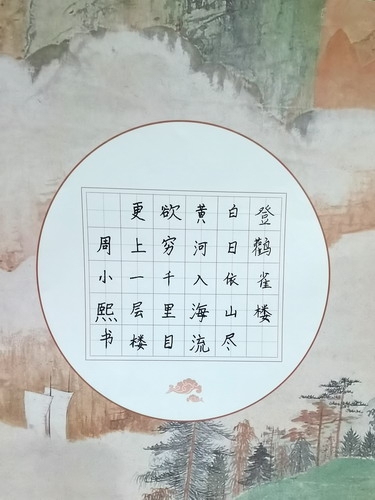 登鹳雀楼
白日依山尽
黄河入海流
欲穷千里目
更上一层楼
周小熙书